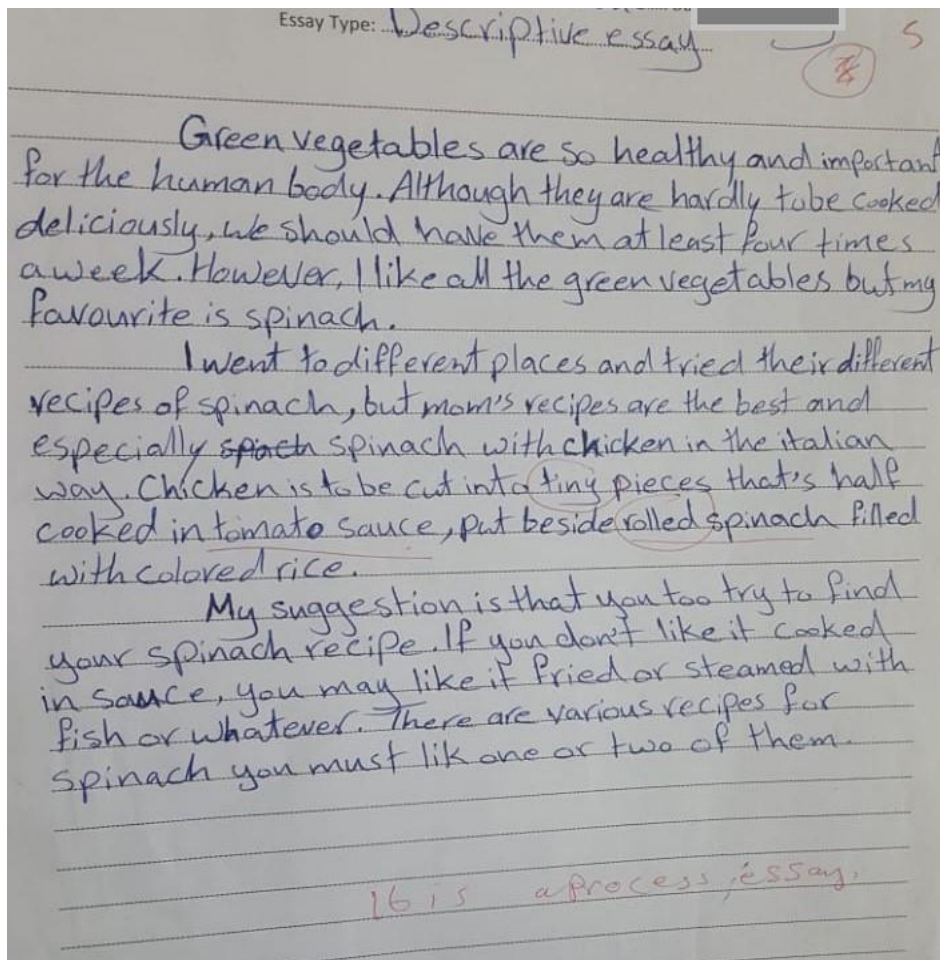 Essay Type: Descriptive essay
5
Green vegetables are so healthy and important
for the human body. Although they are hardly to be cooked
deliciously, we should have them at least four times
a week. However, I like all the green vegetables but my
favourite is spinach.
I went to different places and tried their different
recipes of spinach, but mom's recipes are the best and
especially spinach with chicken in the italian
way. Chicken is to be cut into tiny pieces that's half
cooked in tomato sauce, put beside rolled spinach filled
with colored rice.
My suggestion is that you too try to find
your spinach recipe. If you don't like it cooked
in sauce, you may like it fried or steamed with
fish or whatever. There are various recipes for
spinach you must lik one or two of them.
It is a process essay.